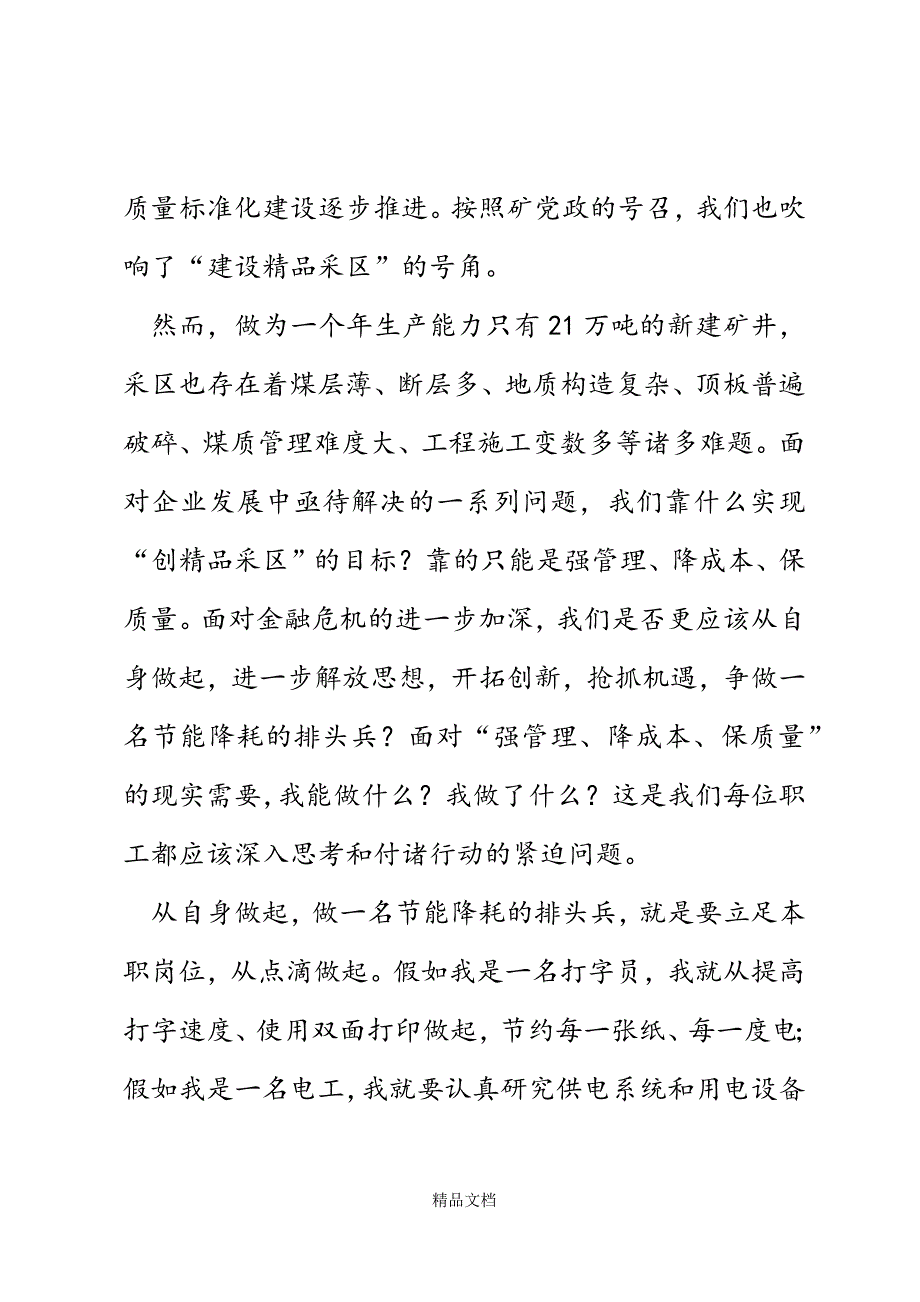 质量标准化建设逐步推进。按照矿党政的号召，我们也吹
响了“建设精品采区”的号角。
然而，做为一个年生产能力只有 21 万吨的新建矿井，
采区也存在着煤层薄、断层多、地质构造复杂、顶板普遍
破碎、煤质管理难度大、工程施工变数多等诸多难题。面
对企业发展中亟待解决的一系列问题，我们靠什么实现
“创精品采区”的目标？靠的只能是强管理、降成本、保
质量。面对金融危机的进一步加深，我们是否更应该从自
身做起，进一步解放思想，开拓创新，抢抓机遇，争做一
名节能降耗的排头兵？面对“强管理、降成本、保质量”
的现实需要，我能做什么？我做了什么？这是我们每位职
工都应该深入思考和付诸行动的紧迫问题。
从自身做起，做一名节能降耗的排头兵，就是要立足本
职岗位，从点滴做起。假如我是一名打字员，我就从提高
打字速度、使用双面打印做起，节约每一张纸、每一度电；
假如我是一名电工，我就要认真研究供电系统和用电设备
精品文档